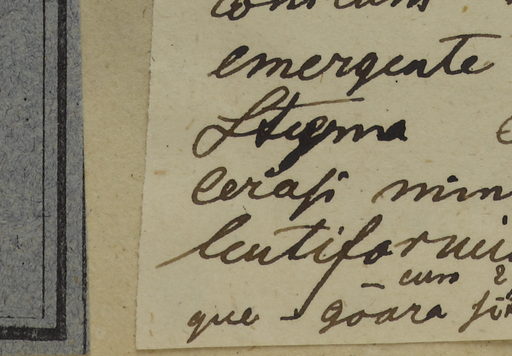 emergente
Stigma
Cerasi min
lentiformi
cum
que - goara